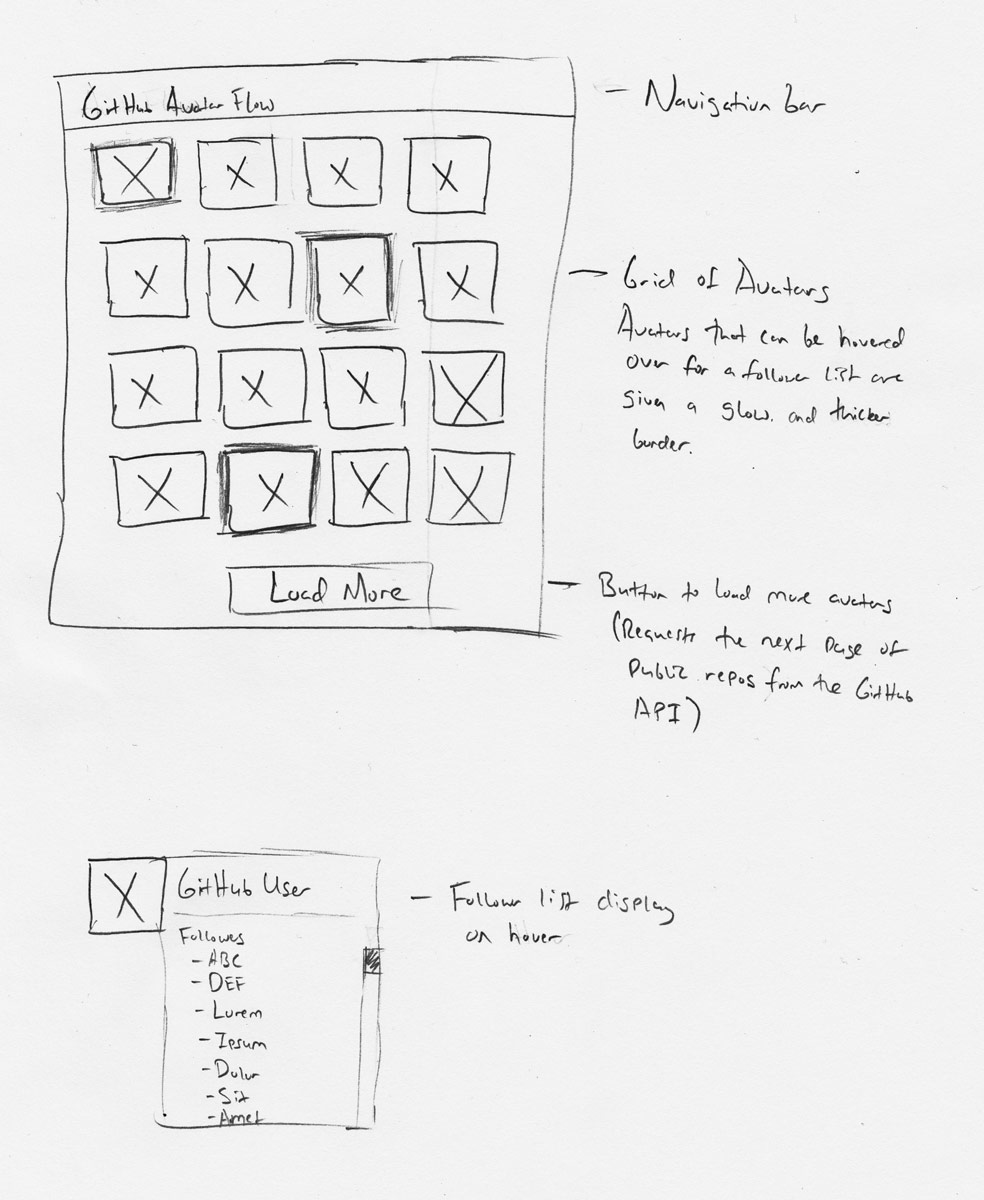 GitHub Avatar Flow
- Navigation bar
- Grid of Avatars
Avatars that can be hovered
over for a follower list are
given a glow. and thicker
border.
Load More
- Button to load more avatars
(Requests the next page of
public repos from the GitHub
API)
GitHub User
Followes
- ABC
- DEF
- Lorem
- Ipsum
- Dolor
- Sit
- Amet
- Follower list display
on hover